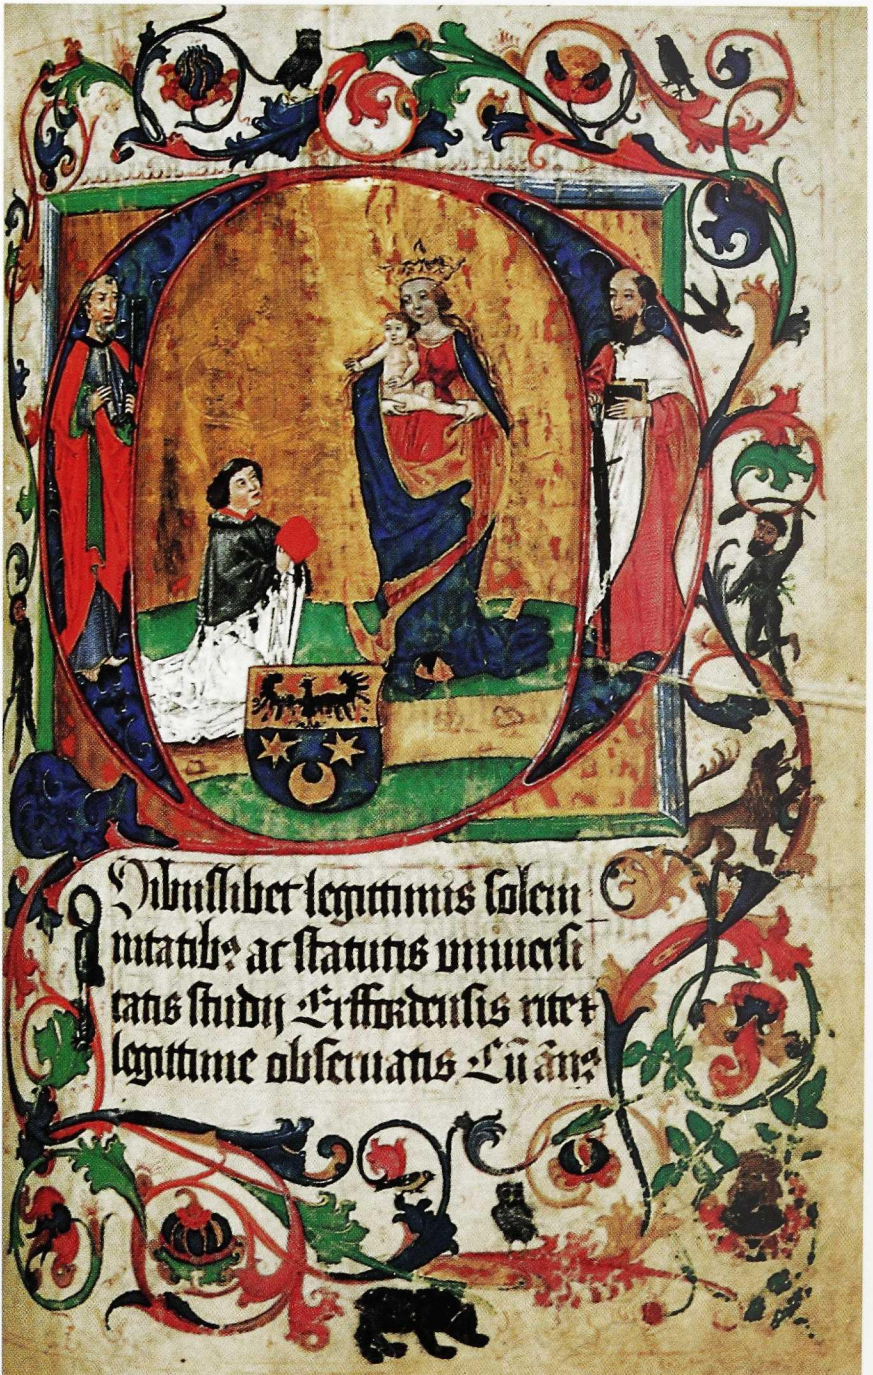 Quibuslibet legittimis solem
nitatibꝫ ac statutis vniuersi
tatis studij Erffordensis rite ⁊
legittime obseruatis Eūāns